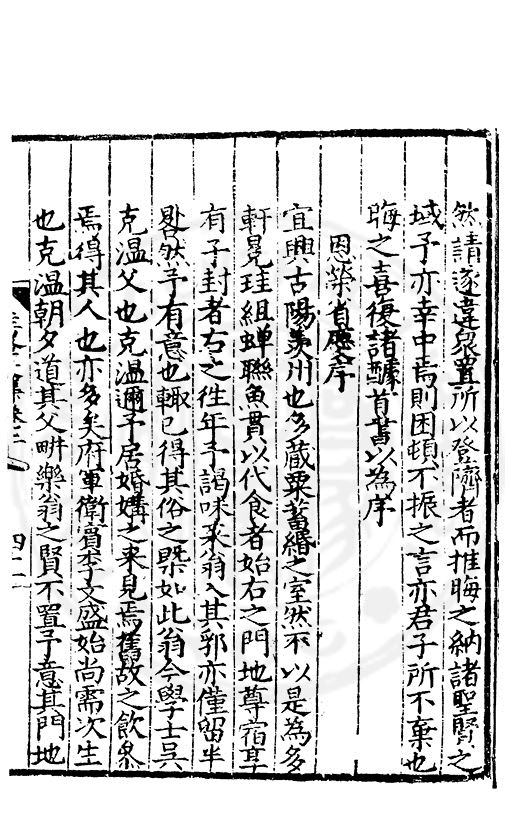 然請遂違眾置所以登薦者而推晦之納諸聖賢之
域予亦幸中焉則困頓不振之言亦君子所不棄也
晦之喜復諸醵首書以為序
恩榮省慶序
宜興古陽羨州也多蔵粟蓄緡之室然不以是為多
軒冕珪組蝉聯魚貫以代食者始右之門地尊宿享
有子封者右之徃年予謁味菜翁入其郛亦僅留半
晷然予有意也輙已得其俗之槩如此翁今學士吳
克温父也克温邇予居婚媾之来見焉舊故之飲泉
焉得其人也亦多矣府軍衛賔李文盛始尚需次生
也克温朝夕道其父畊樂翁之賢不置予意其門地
集卷二
四二